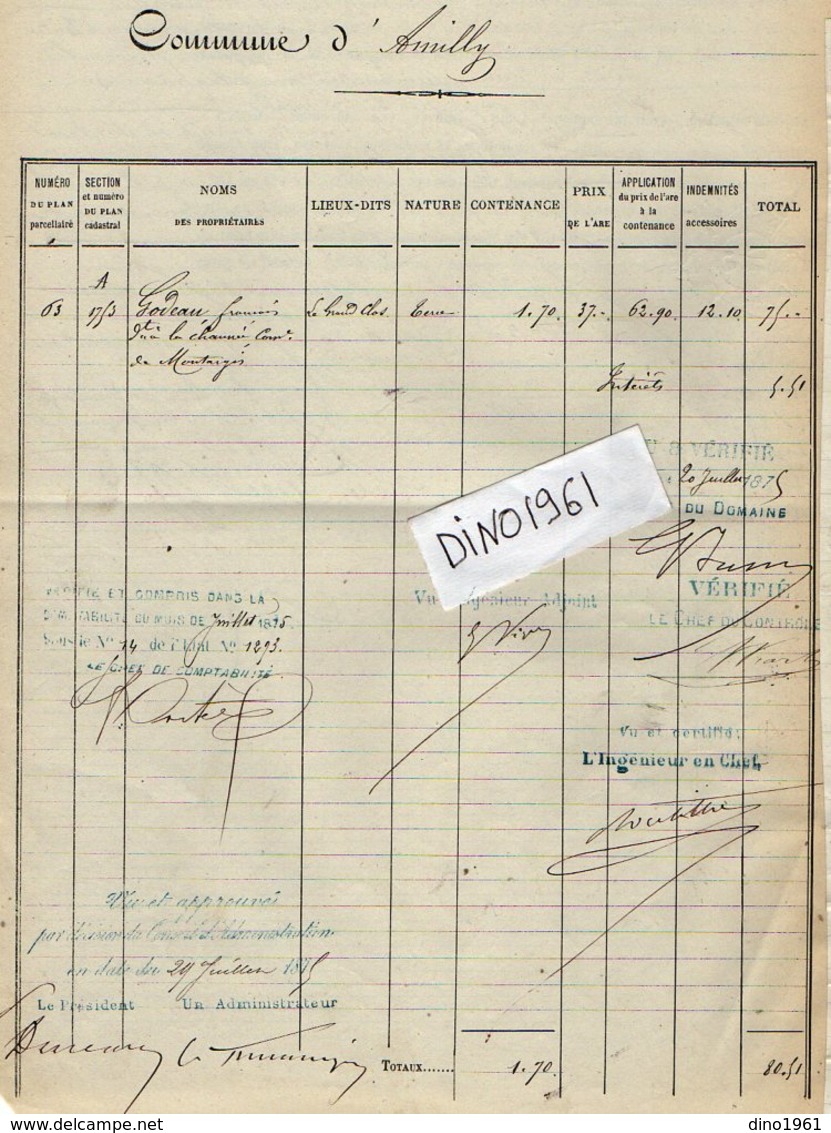 Commune d'Amilly
NUMÉRO DU PLAN parcellaire
SECTION et numéro DU PLAN cadastral
NOMS DES PROPRIÉTAIRES
LIEUX-DITS
NATURE
CONTENANCE
PRIX DE L'ARE
APPLICATION du prix de l'are à la contenance
INDEMNITÉS accessoires
TOTAL
A
63 1753 Godeau françois Le Grand Clos Terre 1.70 37.- 62.90 12.10 75.-
à la chaussée Com.
de Montargis
Intérêts 5.51
VU & VÉRIFIÉ
20 Juillet 1875
DU DOMAINE
DINO1961
VÉRIFIÉ ET COMPRIS DANS LA
COMPTABILITÉ DU MOIS DE Juillet 1875
Sous le No 14 de l'Etat No 1293.
LE CHEF DE COMPTABILITÉ
Vu Ingénieur Adjoint
VÉRIFIÉ
LE CHEF DU CONTRÔLE
Vu et certifié:
L'Ingénieur en Chef,
Vu et approuvé
par décision du Conseil d'Administration
en date du 29 Juillet 1875
Le Président Un Administrateur
TOTAUX....... 1.70 80.51
dino1961